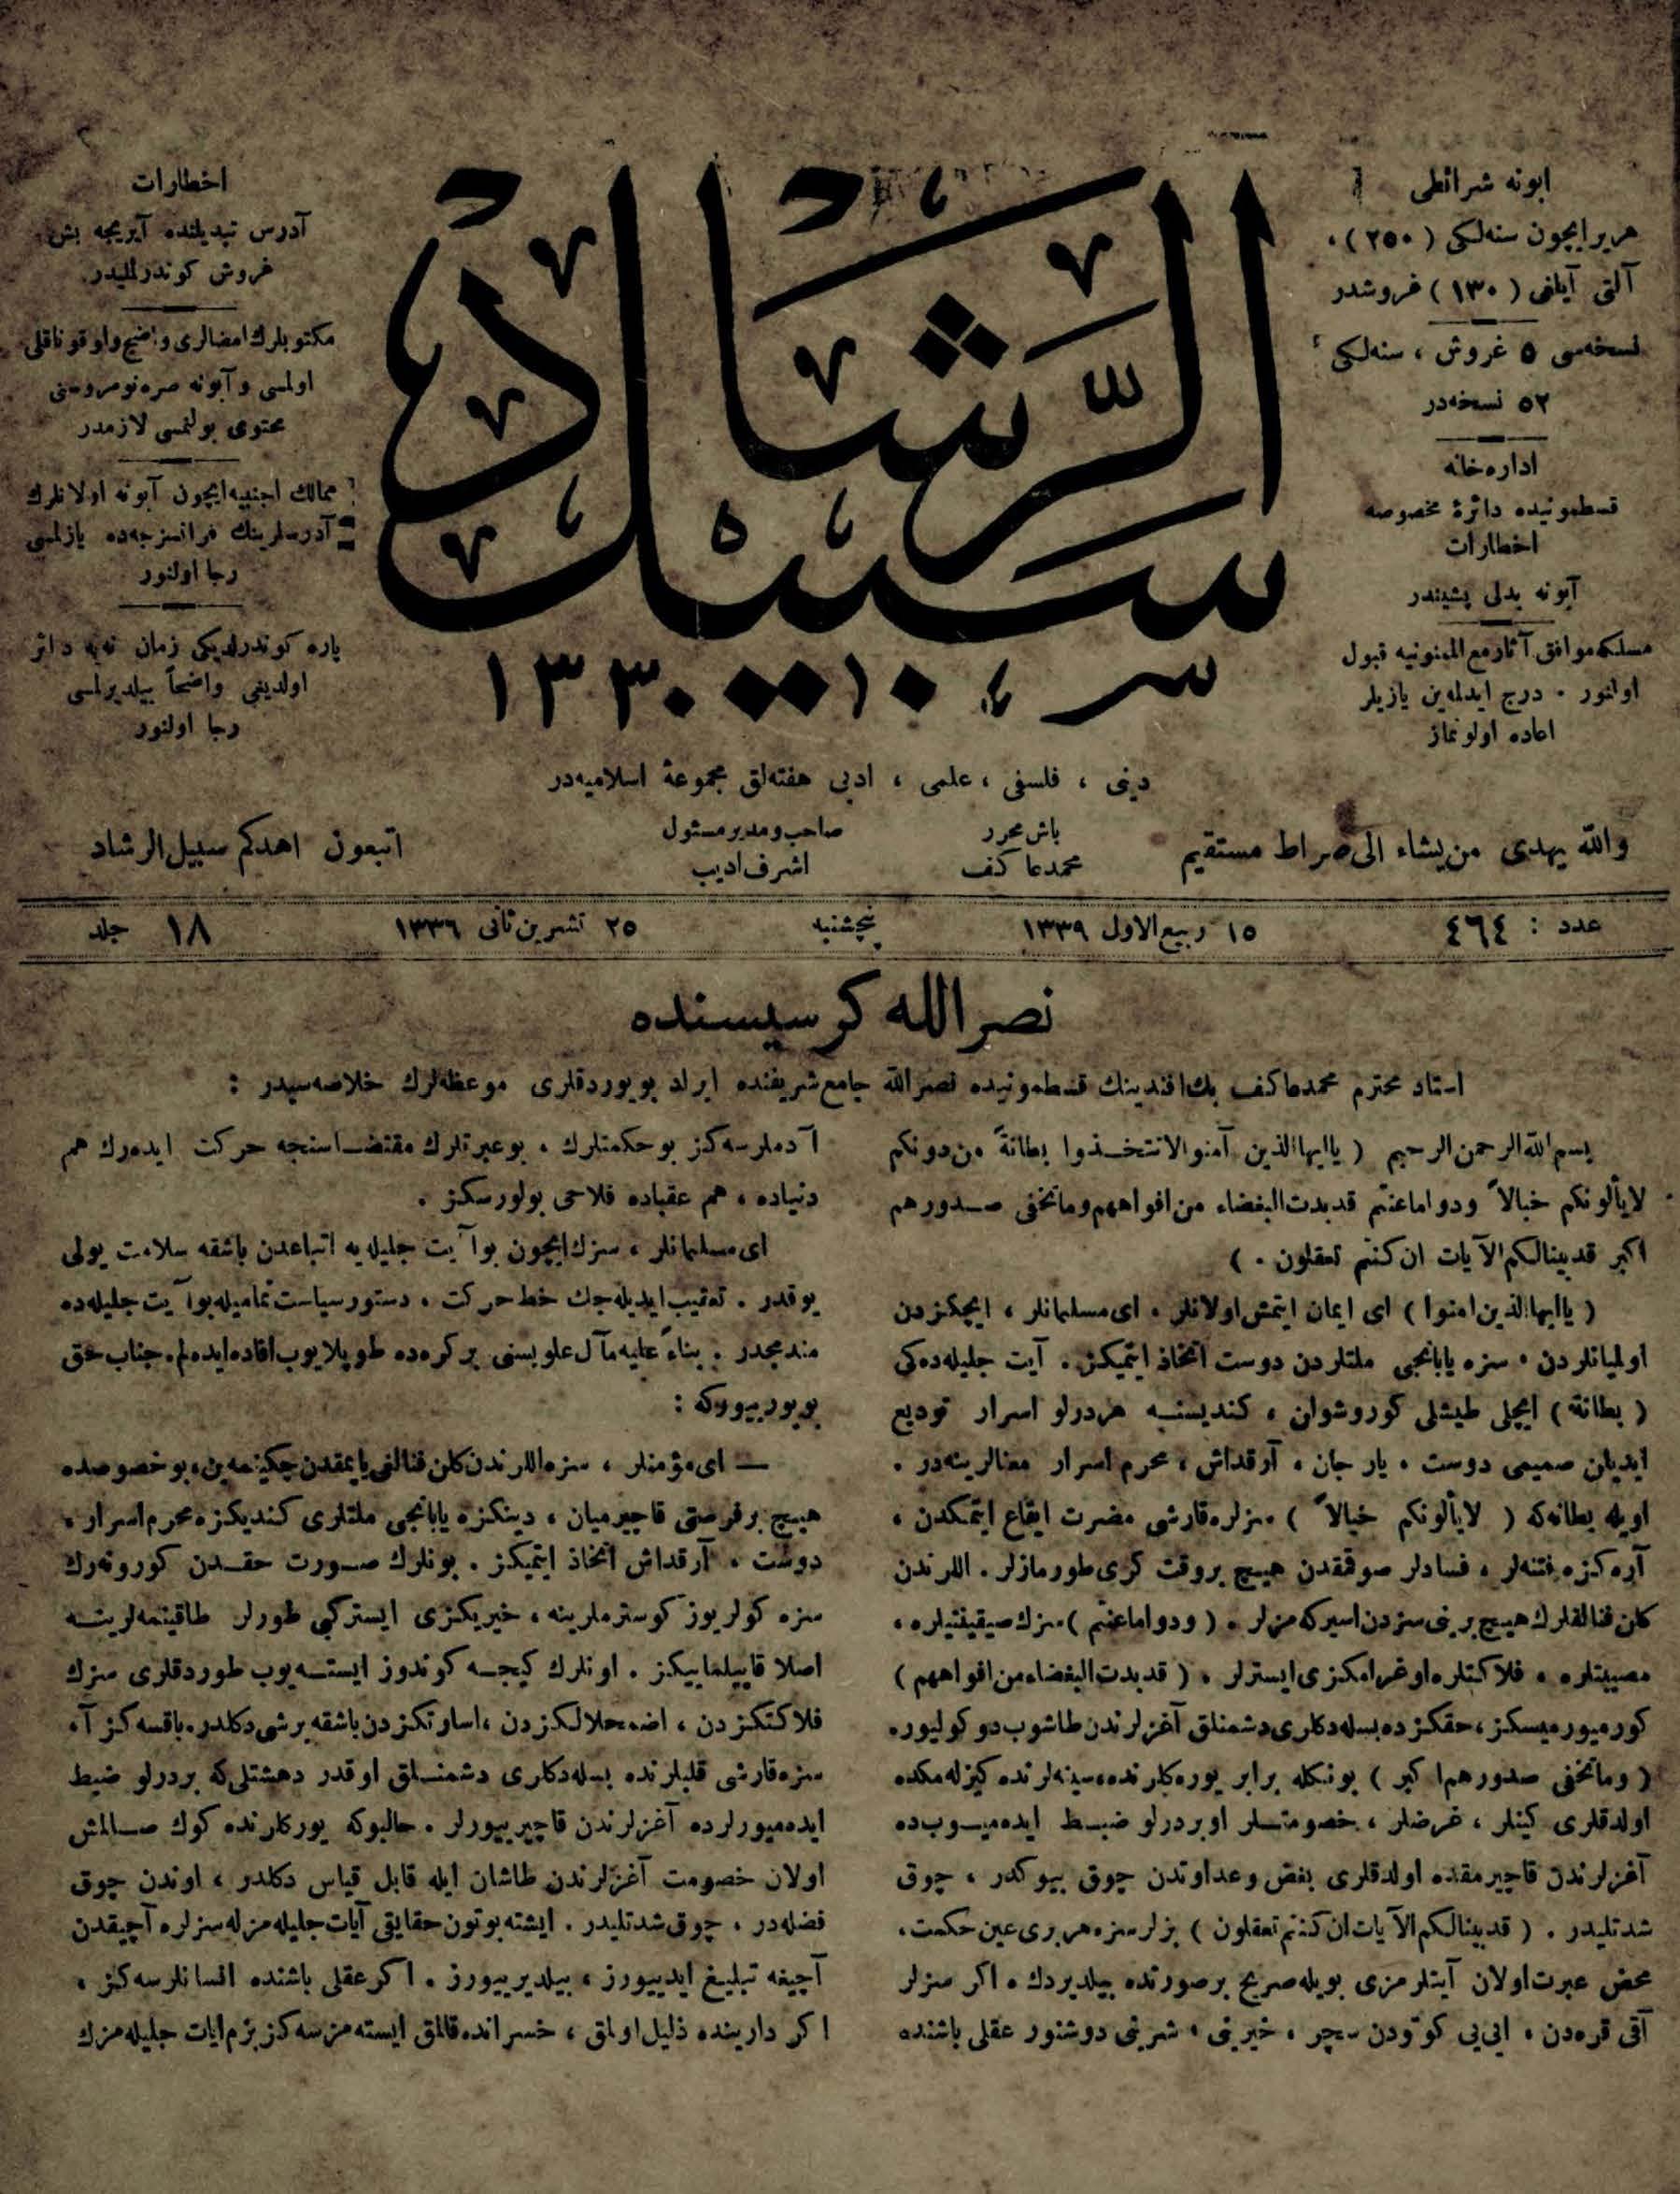 ابونه شرائطى
هر ير ايچون سنه‌لكى ( ٢٥٠ ) ،
آلتى آيلغى ( ١٣٠ ) غروشدر
نسخه‌سى ٥ غروش ، سنه‌لكى
٥٢ نسخه‌در
اداره‌خانه
قسطمونيده دائرۀ مخصوصه
اخطارات
آبونه بدلى پشيندر
مسلكه موافق آثار مع الممنونيه قبول
اولنور . درج ايدلمه‌ين يازيلر
اعاده اولونماز
سبيل الرشاد
سر باء ١٣٣٠
اخطارات
آدرس تبديلنده آيريجه بش
غروش كوندرلميدر
مكتوبلرك امضالرى واضح واوقوناقلى
اولمسى و آبونه صره نومروسنى
محتوى بولنمسى لازمدر
ممالك اجنبيه ايچون آبونه اولانلرك
آدرسلرينك فرانسزجه‌ده يازلمسى
رجا اولنور
پاره كوندرلديكى زمان نه‌يه دائر
اولديغى واضحاً بيلديرلمسى
رجا اولنور
دينى ، فلسفى ، علمى ، ادبى هفته‌لق مجموعۀ اسلاميه‌در
والله يهدى من يشاء الى صراط مستقيم
باش محرر
محمد عاكف
صاحب و مدير مسئول
اشرف اديب
اتبعون اهدكم سبيل الرشاد
عدد : ٤٦٤
١٥ ربيع الاول ١٣٣٩
پنجشنبه
٢٥ تشرين ثانى ١٣٣٦
جلد ١٨
نصرالله كرسيسنده
استاد محترم محمد عاكف بك افندينك قسطمونيده نصرالله جامع شريفنده ايراد بويوردقلرى موعظه‌لرك خلاصه‌سيدر :
بسم الله الرحمن الرحيم ( يا ايها الذين آمنوا لا تتخذوا بطانةً من دونكم
لا يألونكم خبالاً ودوا ما عنتم قد بدت البغضاء من افواههم وما تخفى صدورهم
اكبر قد بينا لكم الآيات ان كنتم تعقلون . )
( يا ايها الذين امنوا ) اى ايمان ايتمش اولانلر ، اى مسلمانلر ، ايچكزدن
اولميانلردن ، سزه يابانجى ملتلردن دوست اتخاذ ايتميكز . آيت جليله‌ده‌كى
( بطانة ) ايچلى طيشلى كوروشوان ، كنديسنه هر درلو اسرار توديع
ايديلن صميمى دوست ، يار جان ، آرقداش ، محرم اسرار معنالرينه‌در .
اويله بطانه‌كه ( لا يألونكم خبالاً ) سزلره قارشى مضرت ايقاع ايتمكدن ،
آره‌كزه فتنه‌لر ، فسادلر صوقمقدن هيچ بر وقت كرى طورمازلر . اللرندن
كلن فنالقلرك هيچ برينى سزدن اسيركه‌مزلر . ( ودوا ما عنتم ) سزك صيقينتيلره ،
مصيبتلره ، فلاكتلره اوغرامكزى ايسترلر . ( قد بدت البغضاء من افواههم )
كورميورميسكز ، حقكزده بسله‌دكلرى دشمنلق آغزلرندن طاشوب دوكوليور .
( وما تخفى صدورهم اكبر ) بونكله برابر يوره‌كلرنده ، سينه‌لرنده كيزله‌مكده
اولدقلرى كينلر ، غرضلر ، خصومتلر او بردرلو ضبط ايده‌ميوب ده
آغزلرندن قاچيرمقده اولدقلرى بغض وعداوتدن چوق بيوكدر ، چوق
شدتليدر . ( قد بينا لكم الآيات ان كنتم تعقلون ) بزلر سزه هر برى عين حكمت ،
محض عبرت اولان آيتلرمزى بويله صريح بر صورتده بيلديردك . اكر سزلر
آقى قره‌دن ، ايى‌يى كوتودن سچر ، خيرينى ، شرينى دوشنور عقلى باشنده
آدملرسه‌كز بو حكمتلرك ، بو عبرتلرك مقتضاسنجه حركت ايده‌رك هم
دنياده ، هم عقباده فلاحى بولورسكز .
اى مسلمانلر ، سزك ايچون بو آيت جليله‌يه اتباعدن باشقه سلامت يولى
يوقدر . تعقيب ايديله‌جك خط حركت ، دستور سياست تماميله بو آيت جليله‌ده
مندمجدر . بناءً عليه مآل علويسنى بر كره‌ده طوپلايوب افاده ايده‌لم . جناب حق
بويورييوركه :
— اى مؤمنلر ، سزه اللرندن كلن فنالغى ياپمقدن چكينمه‌ين ، بو خصوصده
هيچ بر فرصتى قاچيرميان ، دينكزه يابانجى ملتلرى كنديكزه محرم اسرار ،
دوست ، آرقداش اتخاذ ايتميكز . بونلرك صورت حقدن كورونه‌رك
سزه كولريوز كوسترملرينه ، خيريكزى ايستركبى طورلر طاقينمه‌لرينه
اصلا قاپيلمايكز . اونلرك كيجه كوندوز ايسته‌يوب طوردقلرى سزك
فلاكتكزدن ، اضمحلالكزدن ، اسارتكزدن باشقه بر شى دكلدر . باقسه‌كز آ ،
سزه قارشى قلبلرنده بسله‌دكلرى دشمنلق اوقدر دهشتلى‌كه بردرلو ضبط
ايده‌ميورلرده آغزلرندن قاچيرييورلر . حالبوكه يوركلرنده كوك صالمش
اولان خصومت آغزلرندن طاشان ايله قابل قياس دكلدر ، اوندن چوق
فضله‌در ، چوق شدتليدر . ايشته بوتون حقايقى آيات جليله‌مزله سزلره آچيقدن
آچيغه تبليغ ايدييورز ، بيلديرييورز . اكر عقلى باشنده انسانلرسه‌كز ،
اكر دارينده ذليل اولمق ، خسرانده قالمق ايسته‌مزسه‌كز بزم ايات جليله‌مزك